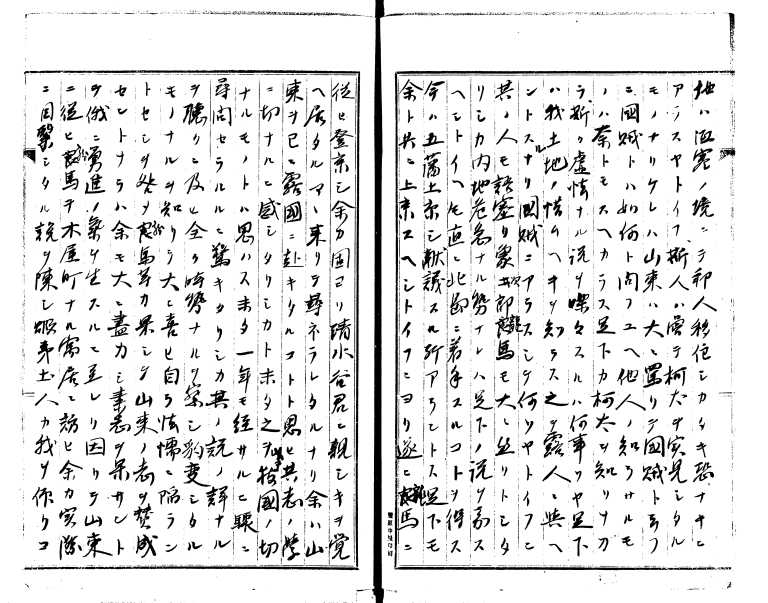 地ハ沍寒ノ境ニテ邦人移住シカタキ恐ナキニ
アラスヤトイフ斯人ハ嘗テ柯太ヲ実見シタル
モノナリケレハ山東ハ大ニ罵リテ国賊ト言フ
ニ国賊トハ如何ト問フユヘ他人ノ知ラサルモ
ノハ奈トモスヘカラス足下カ柯太ヲ知リナカ
ラ斯ク虚怯ナル説ヲ喋々スルハ何事ソヤ足下
ハ我土地ノ惜ムヘキヲ知ラス之ヲ露人ニ与ヘ
ントスル国賊ニアラスシテ何ソヤトイフニ
其ノ人モ語塞リ象次郎龍馬モ大ニ
リシカ内地危急ナル勢ナレハ足下ノ説ヲ
ヘシトイヘモ直ニ此ニ着手スルコトヲ得ス
今ハ五藩上京シ献議スル所アラントス足下モ
余ト共ニ上京スヘシトイフニヨリ遂ニ龍馬ニ
従ヒ登京シ余カ固ヨリ清水谷君ニ親シキヲ覚
ヘ居タルマヽ来リテ尋ネラレタルナリ余ハ山
東ヲ已ニ露国ニ赴キタルコトト思ヒ其志ノ
ニ切ナルニ感シタリシカト未タ之ヲ国ノ切
ナルモノトハ思ハス未タ一年モ経サルニ
尋問セラルルニ驚キタリシカ其ノ説ノ詳ナル
ヲ聴クニ及ヒ全ク時勢ナルヲ察シ豹変シタル
モノナルヲ知リテ大ニ喜ヒ自ラ怯懦ニ陥ラン
トセシヲ外ヲ龍馬等カ果シテ山東ノ志ヲ賛成
セントナラハ余モ大ニ尽力シ素志ヲ果サント
ヲ俄ニ勇進ノ気ヲ生スルニ至レリ因リテ山東
ニ従ヒ龍馬ヲ木屋町ナル寓居ニ訪ヒ余カ実際
ニ目撃シタル説ヲ陳シ蝦夷土人カ我ヲ